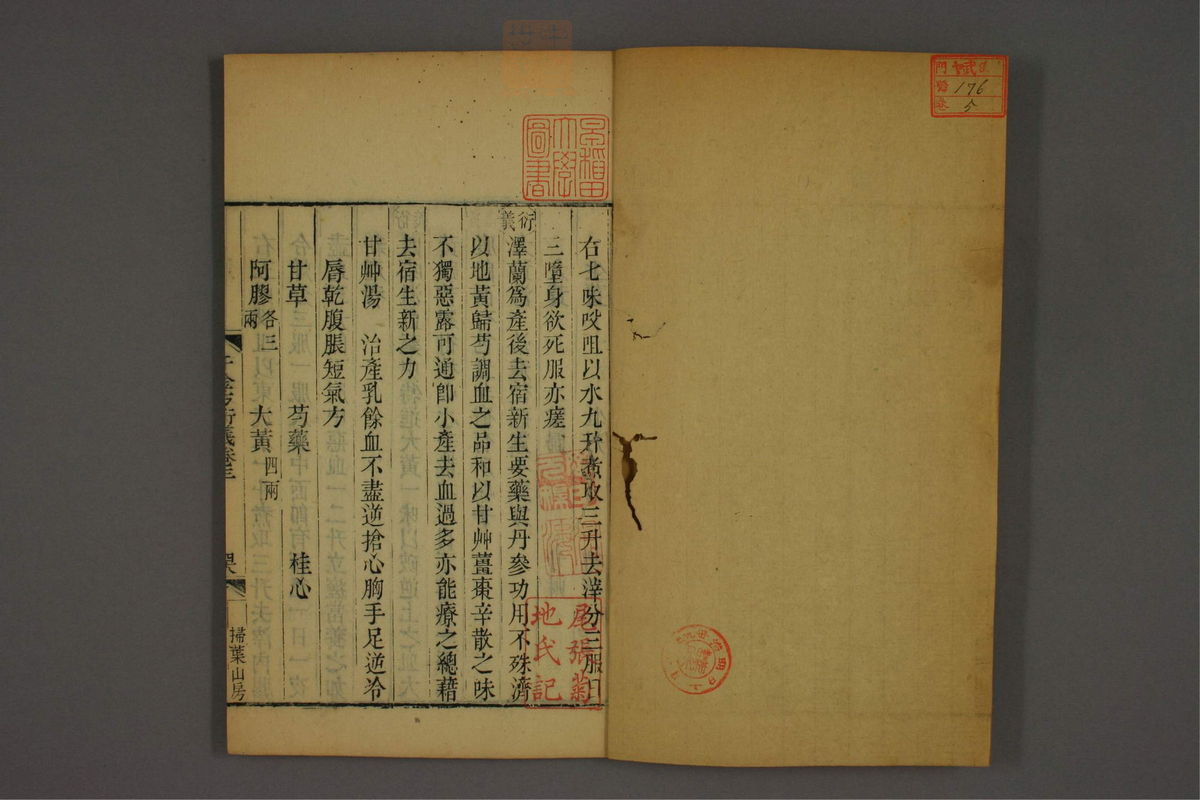 右七味㕮咀以水九升煮取三升去滓分三服日
三墮身欲死服亦瘥
衍義
澤蘭爲產後去宿新生要藥與丹參功用不殊濟
以地黃歸芍調血之品和以甘艸薑棗辛散之味
不獨惡露可通卽小產去血過多亦能療之總藉
去宿生新之力
甘艸湯　治產乳餘血不盡逆搶心胸手足逆冷
脣乾腹脹短氣方
甘草　芍藥　桂心
阿膠各三兩　大黃四兩
千金方衍義卷三
掃葉山房
早稻田大學圖書
尾張菊地氏記
門
號 176
卷 5